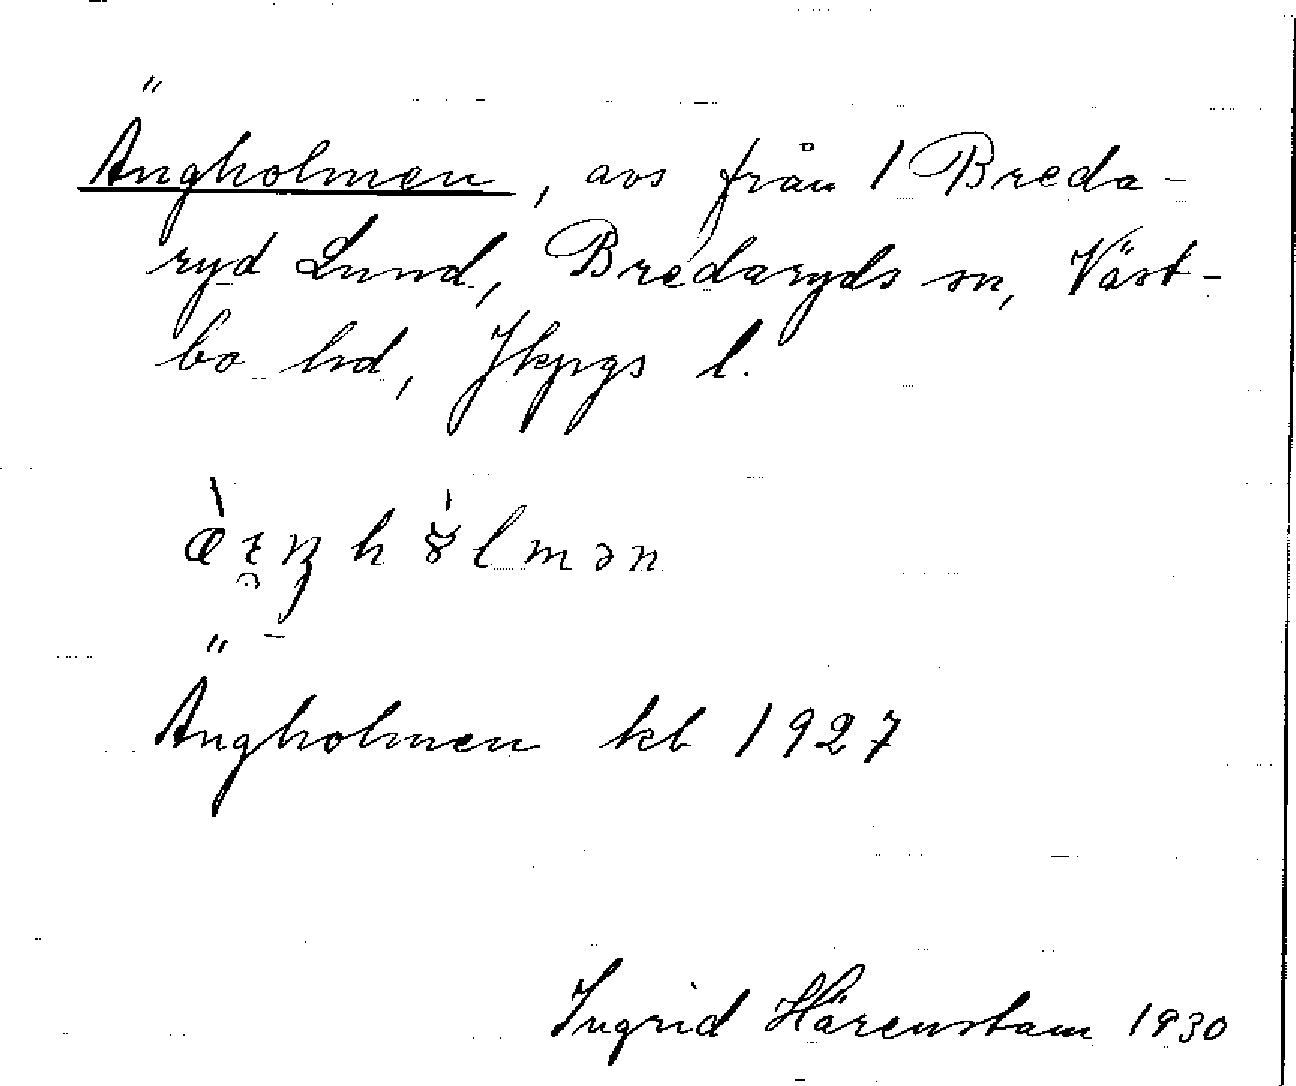 Ängholmen, avs från 1 Breda-
ryd Lund, Bredaryds sn, Väst-
bo hd, Jkpgs l.
Ängholmen kb 1927
Ingrid Härenstam 1930